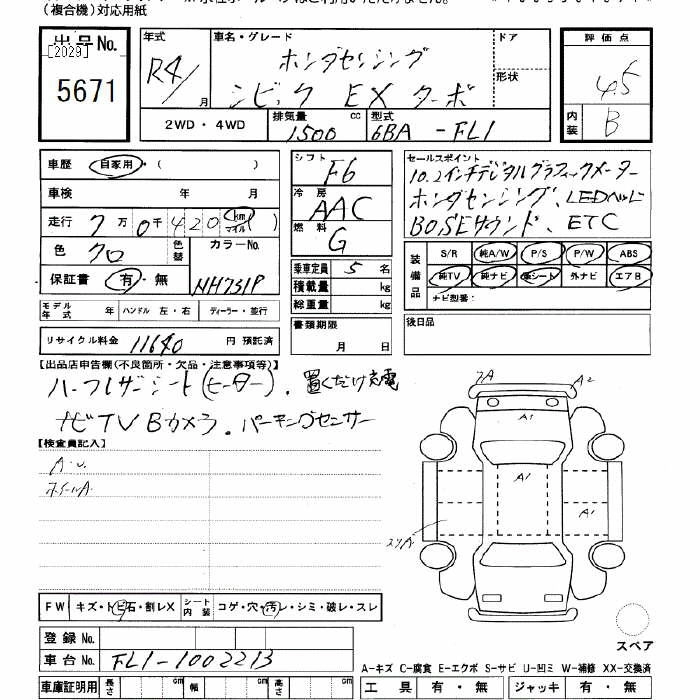 (複合機)対応用紙
出品No.
[2029]
5671
年式
R4/
月
車名・グレード
ホンダセンシング
シビック EX ターボ
ドア
形状
評価点
4.5
内装
B
2WD・4WD
排気量
1500
cc
型式
6BA-FL1
車歴 自家用・( )
車検 年 月
走行 7万0千420 km マイル
色 クロ
色替
カラーNo.
NH731P
保証書 有・無
モデル年式 年 ハンドル 左・右 ディーラー・並行
リサイクル料金 11640 円 預託済
シフト F6
冷房 AAC
燃料 G
乗車定員 5 名
積載量 kg
総重量 kg
書類期限
月 日
セールスポイント
10.2インチデジタルグラフィックメーター
ホンダセンシング、LEDヘッド
BOSEサウンド、ETC
装備品
S/R 純A/W P/S P/W ABS
純TV 純ナビ 革シート 外ナビ エアB
ナビ型番:
後日品
[出品店申告欄(不良箇所・欠品・注意事項等)]
ハーフレザーシート(ヒーター)、置くだけ充電
ナビTV Bカメラ。パーキングセンサー
[検査員記入]
A・U
ホイールA
7A
A2
A1
A1
A1
FW キズ・トビ石・割レX シート内装 コゲ・穴・汚レ・シミ・破レ・スレ
登録No.
車台No. FL1-1002213
車庫証明用 長さ cm 幅 cm 高さ cm
スペア
A-キズ C-腐食 E-エクボ S-サビ U-凹ミ W-補修 XX-交換済
工具 有・無 ジャッキ 有・無